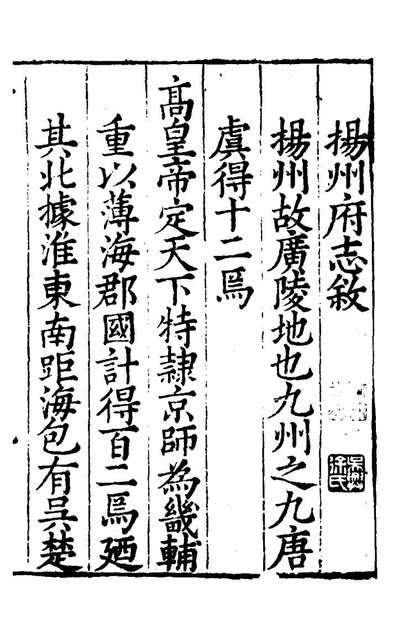 揚州府志敘
揚州故廣陵地也九州之九唐
虞得十二焉
高皇帝定天下特隷京師為畿輔
重以薄海郡國計得百二焉廼
其北據淮東南距海包有吳楚